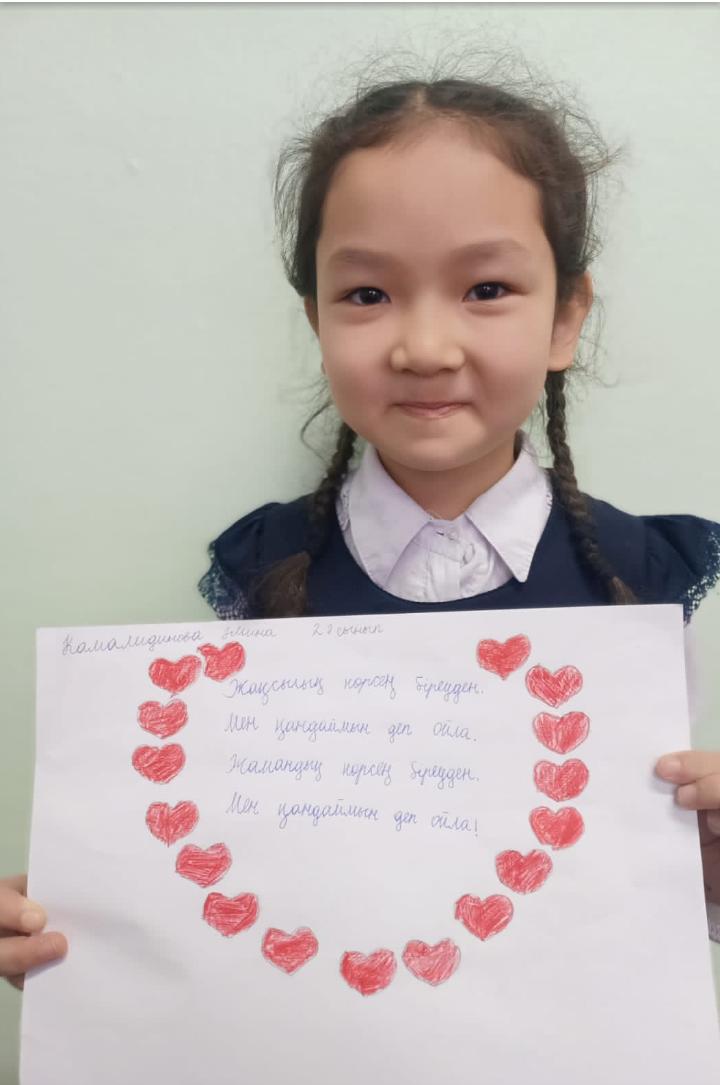 Камалидинова Эмина 2 д сынып
Жақсылық көрсең біреуден.
Мен қандаймын деп ойла.
Жамандық көрсең біреуден.
Мен қандаймын деп ойла!